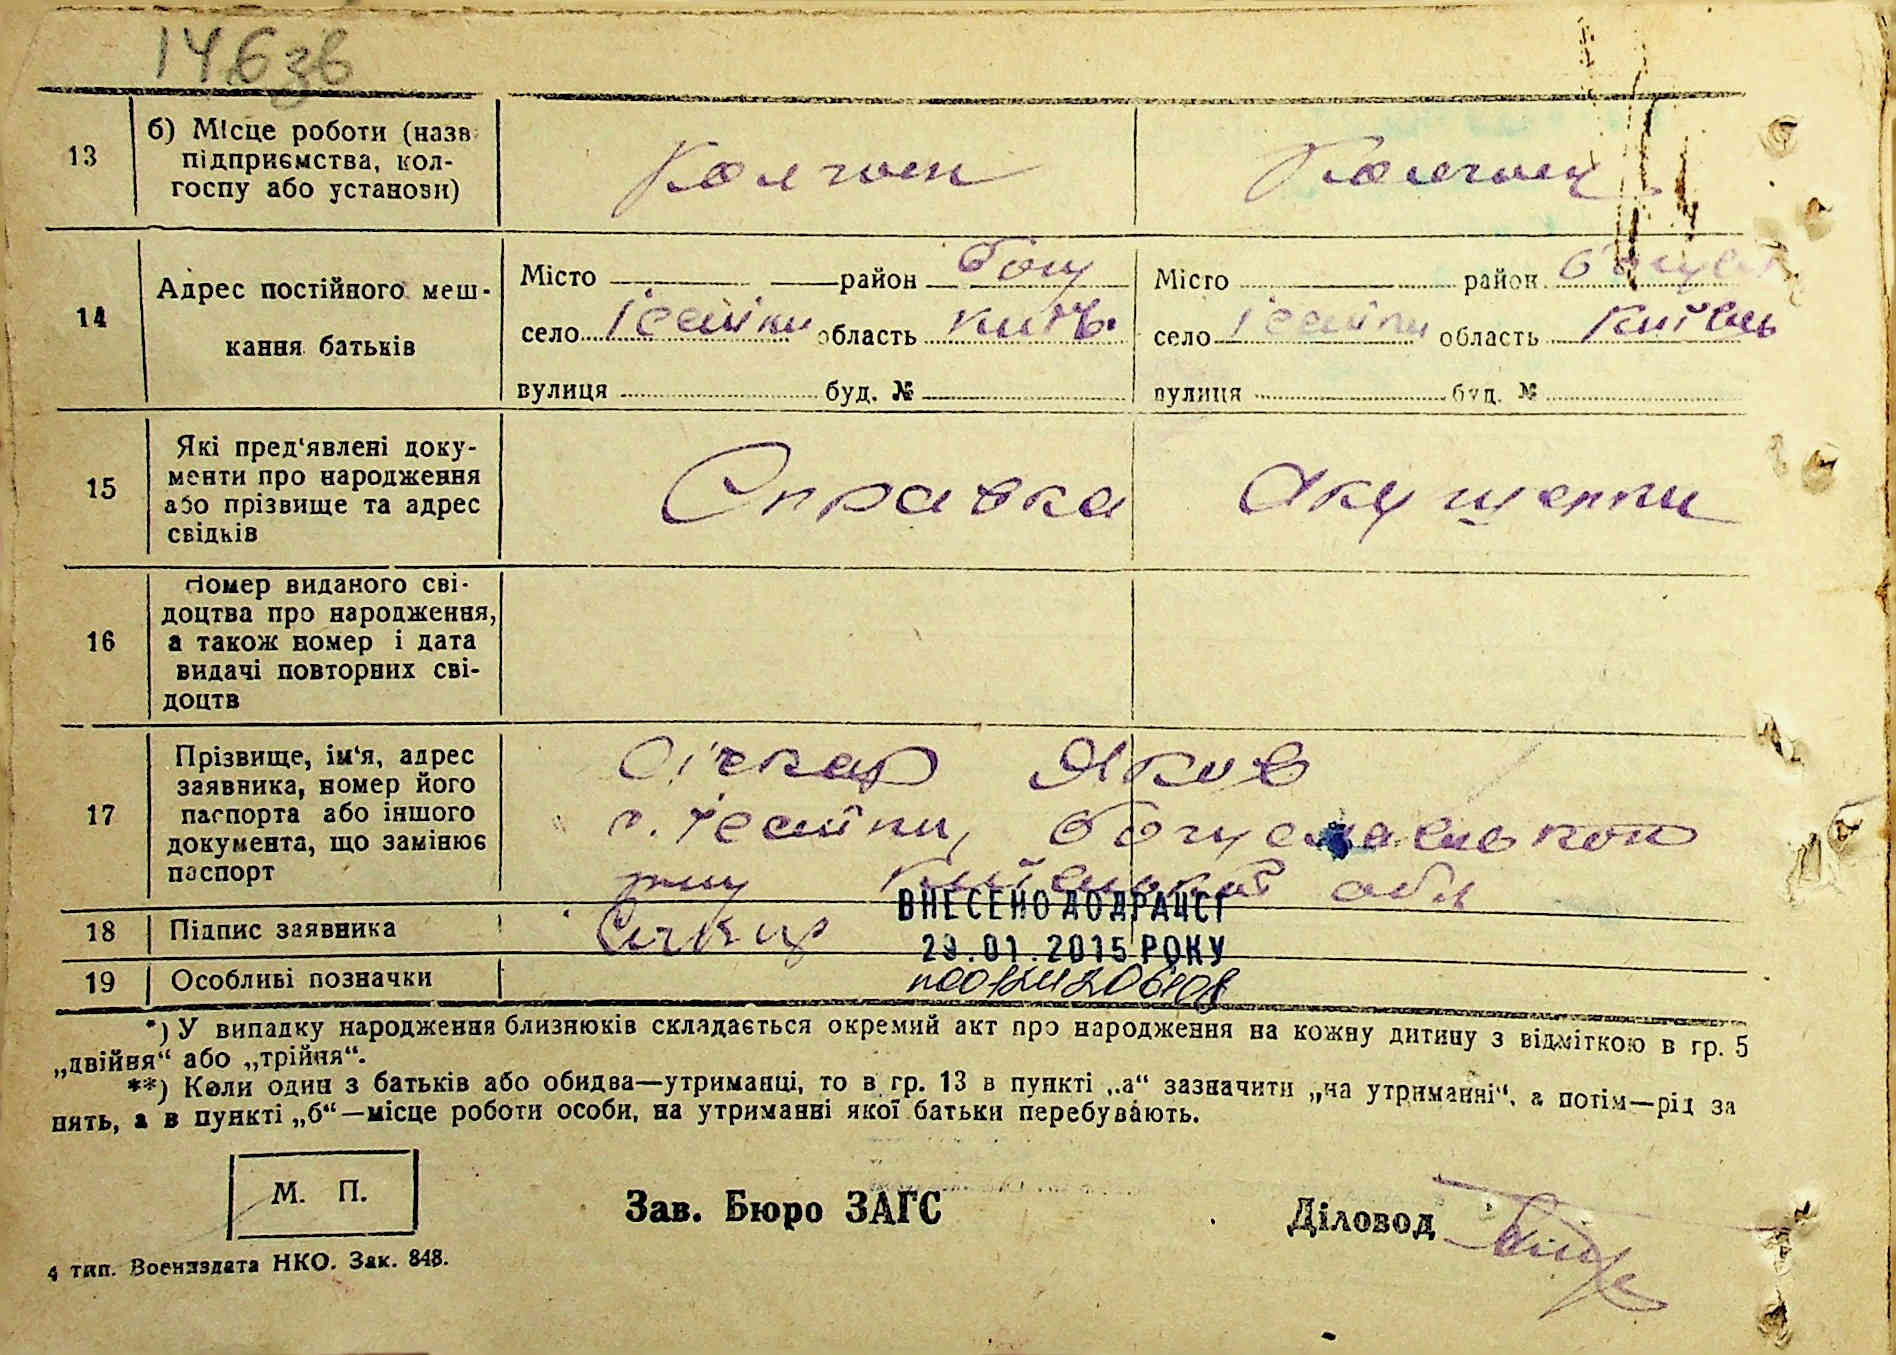 146зв
13
б) Місце роботи (назв
підприємства, кол-
госпу або установи)
Колгосп
Колгосп
14
Адрес постійного меш-
кання батьків
Місто район Богу
село Ісайки область Київ.
вулиця буд. №
Місто район Богусл
село Ісайки область Київсь
вулиця буд. №
15
Які пред'явлені доку-
менти про народження
або прізвище та адрес
свідків
Справка Акушерки
16
Номер виданого сві-
доцтва про народження,
а також номер і дата
видачі повторних сві-
доцтв
17
Прізвище, ім'я, адрес
заявника, номер його
паспорта або іншого
документа, що замінює
паспорт
Січкар Яков
с. Ісайки, Богуславського
р-ну Київської обл
18
Підпис заявника
Сичкар
ВНЕСЕНО ДО ДРАЦСГ
29.01.2015 РОКУ
19
Особливі позначки
*) У випадку народження близнюків складається окремий акт про народження на кожну дитину з відміткою в гр. 5
„двійня“ або „трійня“.
**) Коли один з батьків або обидва—утриманці, то в гр. 13 в пункті „а“ зазначити „на утриманні“, а потім—рід за
нять, а в пункті „б“—місце роботи особи, на утриманні якої батьки перебувають.
М. П.
Зав. Бюро ЗАГС
Діловод
4 тип. Воениздата НКО. Зак. 848.